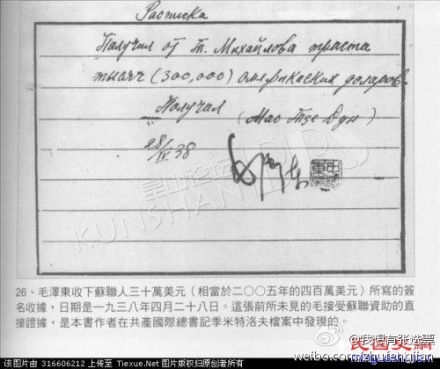 Расписка
Получил от Т. Михайлова триста
тысяч (300,000) американских доларов.
Получил (Мао Тсе Дун)
28/IV 38
26、毛澤東收下蘇聯人三十萬美元（相當於二○○五年的四百萬美元）所寫的簽
名收據，日期是一九三八年四月二十八日。這張前所未見的毛接受蘇聯資助的直
接證據，是本書作者在共產國際總書記季米特洛夫檔案中發現的。
KUNSHAN
该图片由 316606212 上传至 Tiexue.Net 图片版权归原创者所有
weibo.com/zhufengjian